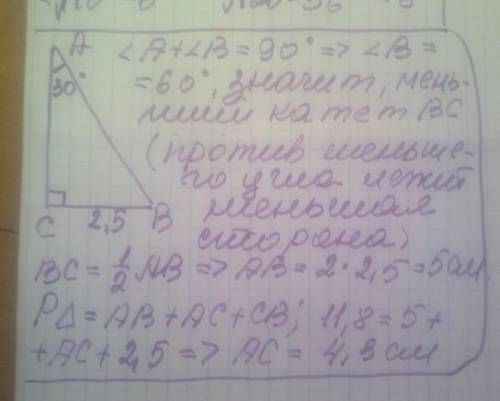 A
30°
C
2,5
B
∠A+∠B=90° => ∠B=
=60°, значит, мень-
ший катет BC
(против меньше-
го угла лежит
меньшая
сторона)
BC = 1/2 AB => AB = 2·2,5 = 5 см.
P△ = AB + AC + CB; 11,8 = 5 +
+ AC + 2,5 => AC = 4,3 см